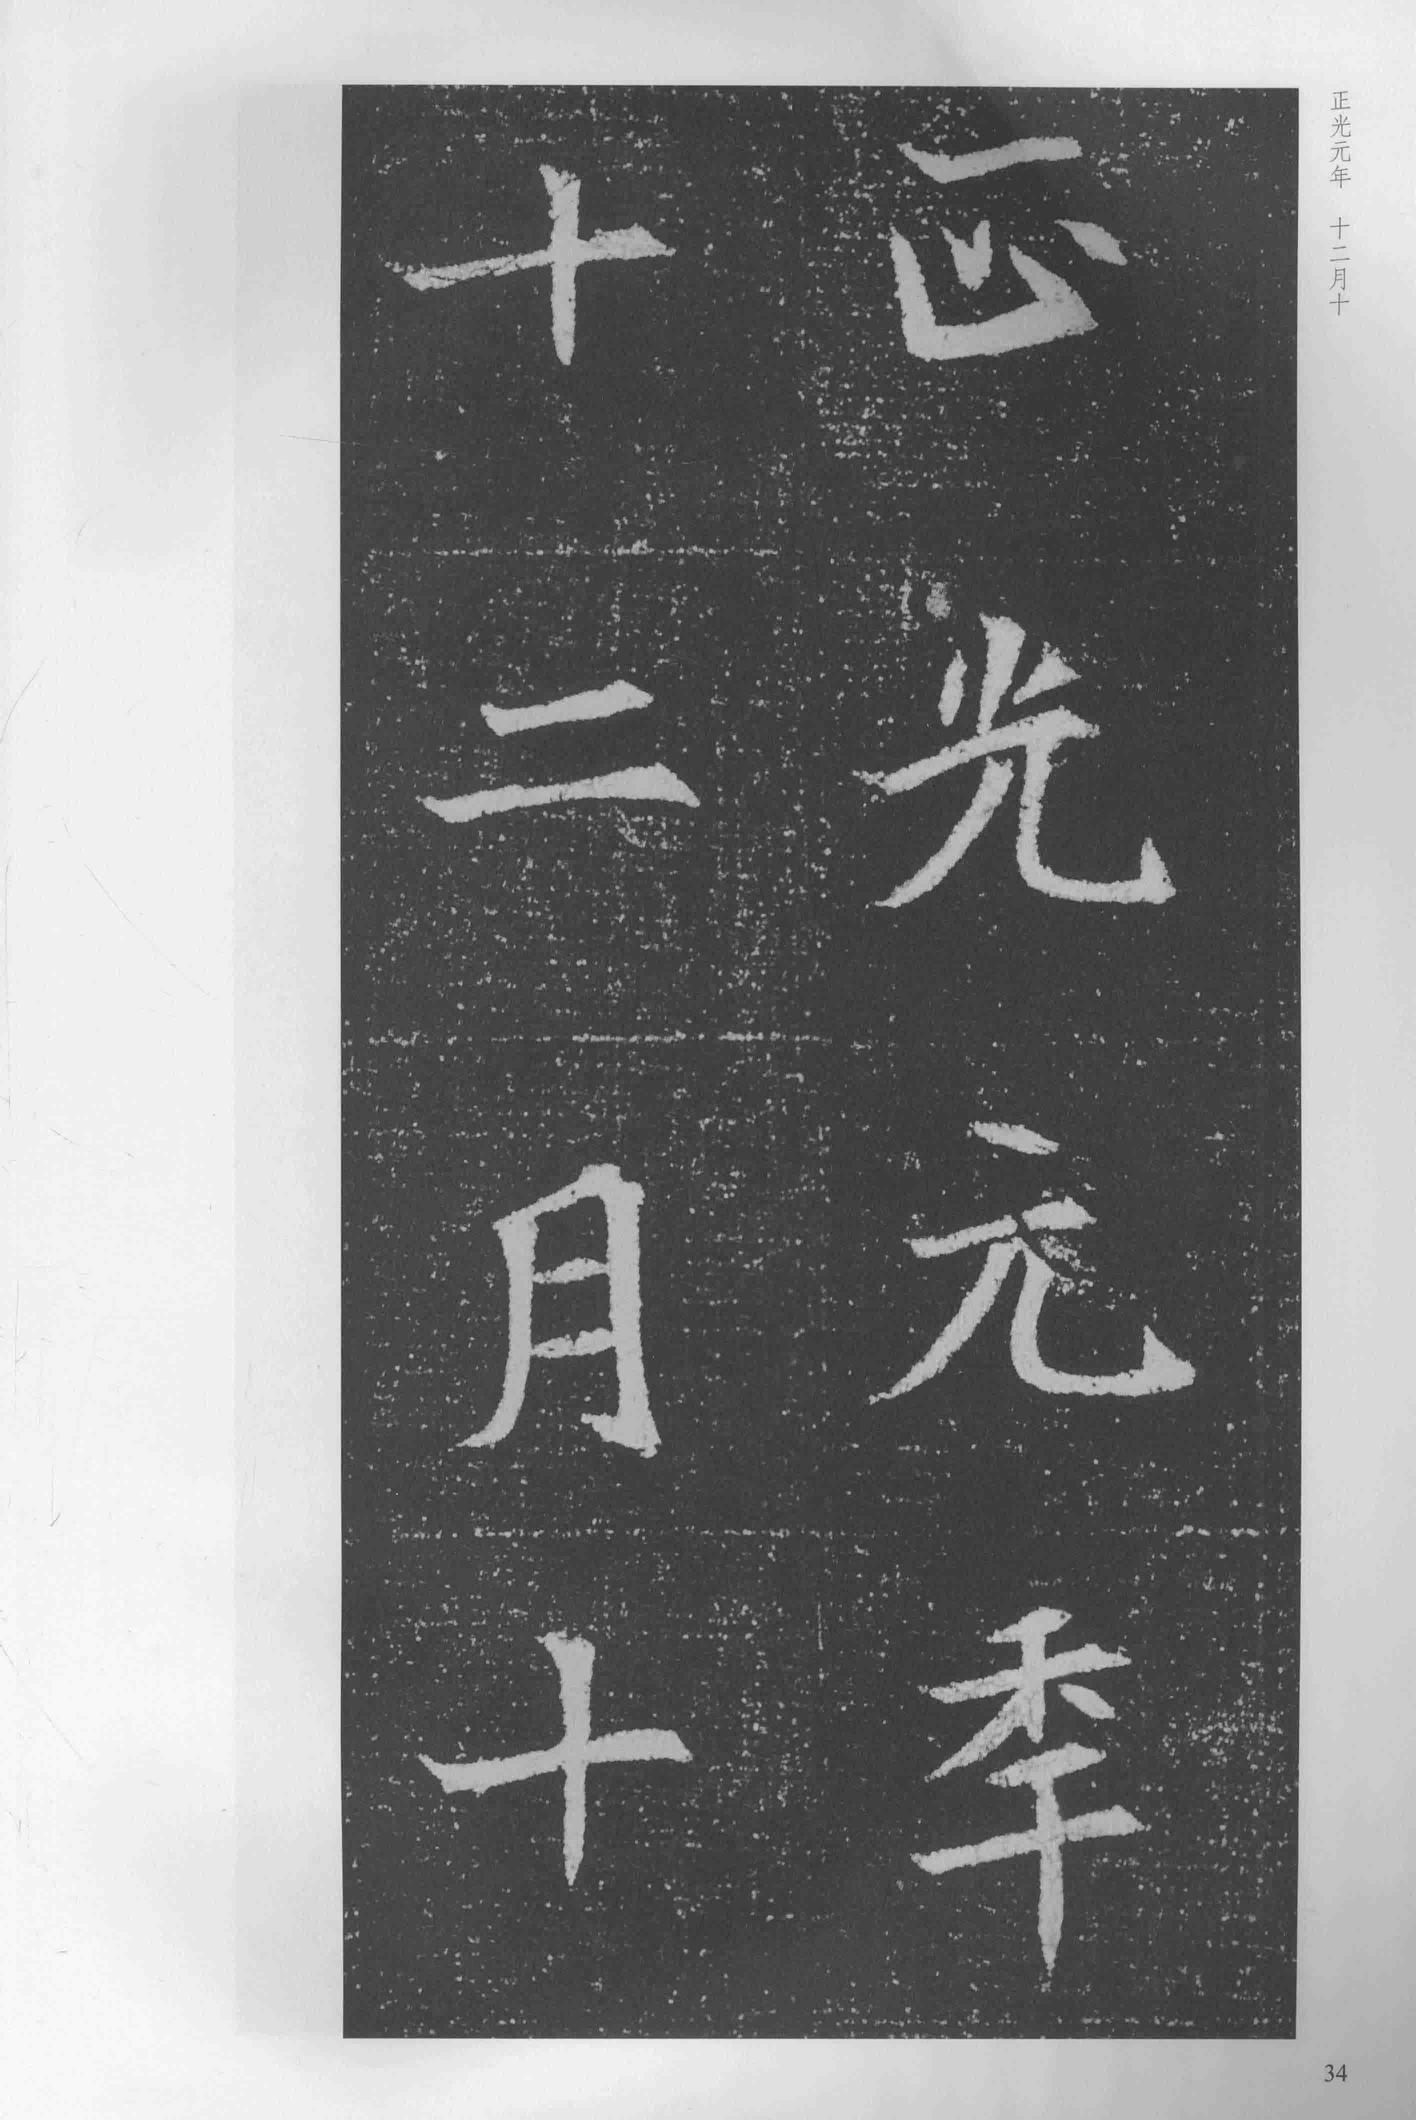 正光元年 十二月十
正光元秊
十二月十
34